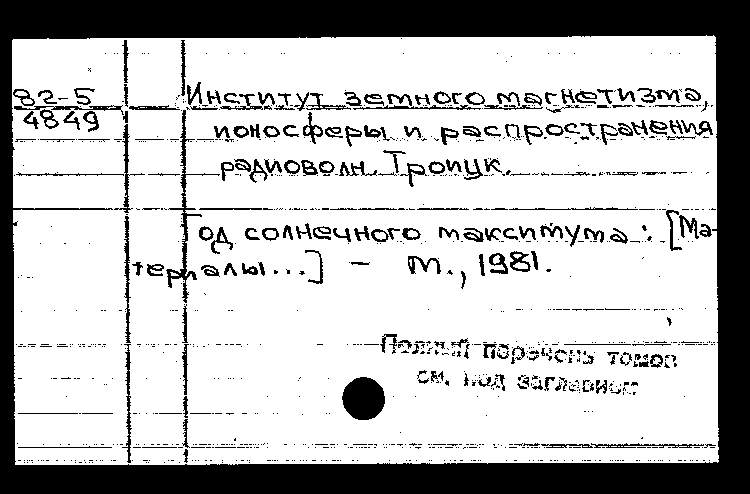 82-5
4849
Институт земного магнетизма,
ионосферы и распространения
радиоволн. Троицк.
Год солнечного максимума: [Ма-
териалы...] - М., 1981.
Полный перечень томов
см. под заглавием